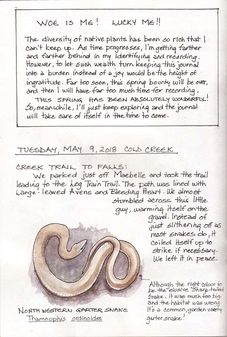 WOE IS ME! LUCKY ME!!
The diversity of native plants has been so rich that I
can't keep up. As time progresses, I'm getting farther
and farther behind in my identifying and recording.
However, to let such wealth turn keeping this journal
into a burden instead of a joy would be the height of
ingratitude. Far too soon, this spring bounty will be over,
and then I will have far too much time for recording.
THIS SPRING HAS BEEN ABSOLUTELY WONDERFUL!
So, meanwhile, I'll just keep exploring and the journal
will take care of itself in the time to come.
TUESDAY, MAY 9, 2018 COLD CREEK
CREEK TRAIL TO FALLS:
We parked just off Maebelle and took the trail
leading to the Log Train Trail. The path was lined with
Large-leaved Avens and Bleeding Heart. We almost
stumbled across this little
guy, warming itself on the
gravel. Instead of
just slithering off as
most snakes do, it
coiled itself up to
strike if necessary.
We left it in peace.
NORTHWESTERN GARTER SNAKE
Thamnophis ordinoides
Although the right colour to
be the elusive Sharp-tailed
Snake, it was much too big
and the habitat was wrong.
It's a common, garden variety
garter snake!